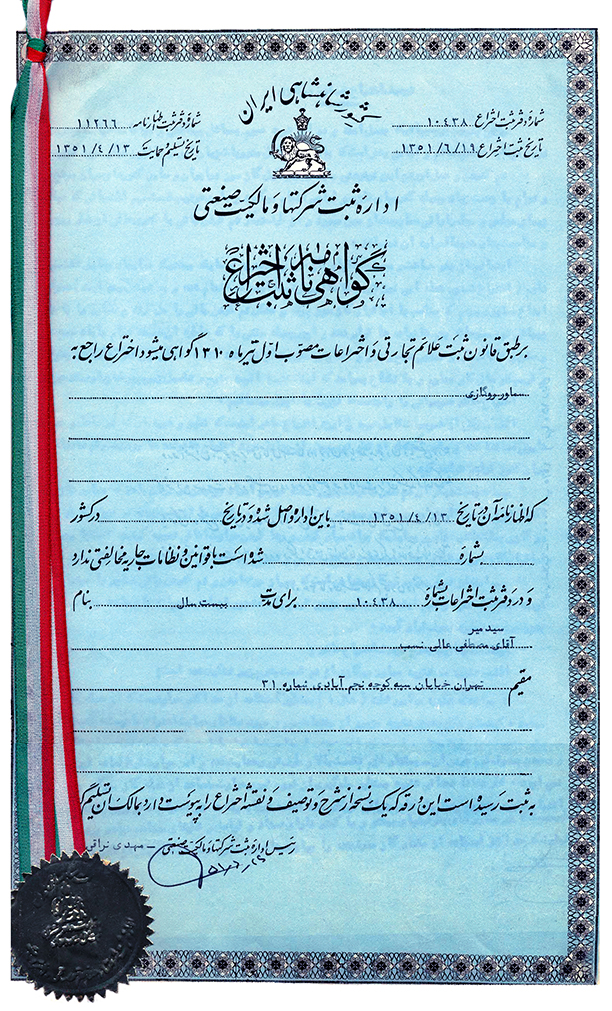 کشور شاهنشاهی ایران
شماره دفتر ثبت اختراع ۱۰۴۳۸
شماره دفتر ثبت اظهارنامه ۱۱۲۶۶
تاریخ ثبت اختراع ۱۳۵۱/۶/۱۹
تاریخ تسلیم و حمایت ۱۳۵۱/۴/۱۳
اداره ثبت شرکتها و مالکیت صنعتی
گواهی نامه ثبت اختراع
بر طبق قانون ثبت علائم تجارتی و اختراعات مصوب اول تیر ماه ۱۳۱۰ گواهی میشود اختراع راجع به
سماور روگازی
که اظهارنامه آن در تاریخ ۱۳۵۱/۴/۱۳ باین اداره واصل شده و تاریخ در کشور
بشماره شده است با قوانین و نظامات جاریه مخالفتی ندارد
و در دفتر ثبت اختراعات بشماره ۱۰۴۳۸ برای مدت بیست سال بنام
سید میر
آقای مصطفی عالی نسب
مقیم تهران خیابان سپه کوچه نجم آبادی شماره ۳۱
به ثبت رسیده است این ورقه که یک نسخه از شرح و توصیف و نقشه اختراع را به پیوست دارد بمالک آن تسلیم
رئیس اداره ثبت شرکتها و مالکیت صنعتی – مهدی نراقی